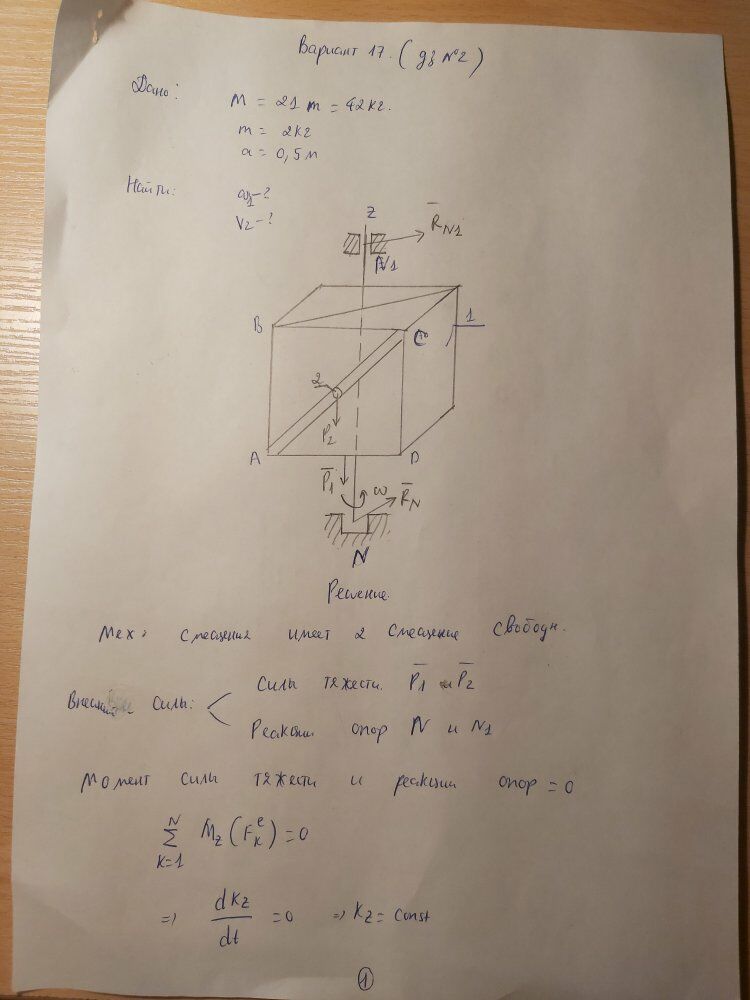 Вариант 17. (дз №2)
Дано:
M = 21 m = 42 кг.
m = 2 кг
a = 0,5 м
Найти:
ω1-?
V2-?
Z
R̅N1
N1
B
C
1
2
P2
A
D
P̅1
ω
R̅N
N
Решение.
Мех.
имеет 2
свободн.
силы:
Силы тяжести. P̅1 и P̅2
Реакции опор N и N1
Момент силы тяжести и реакции опор = 0
N
Σ Mz(Fke) = 0
K=1
=> dKz/dt = 0 => Kz = const
1